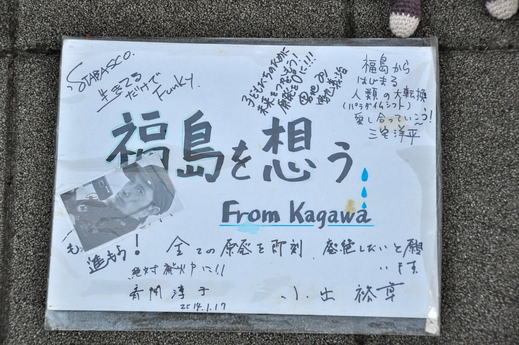 STABASCO.
生きてる
だけで
Funky.
子どもたちのために
未来を
原発を0に!!!
福島から
はじまる
人類の大転換
(パラダイムシフト)
愛し合ってい
三宅洋平
福島を想う
From Kagawa
進もう!
全ての原発を即刻、廃絶したいと願
います
絶対廃炉に!!
斉間淳子
小出裕章
2014.1.17